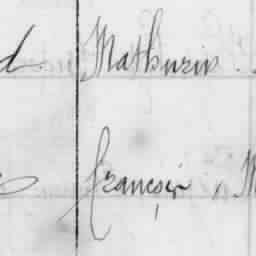 d Mathurin
françois M